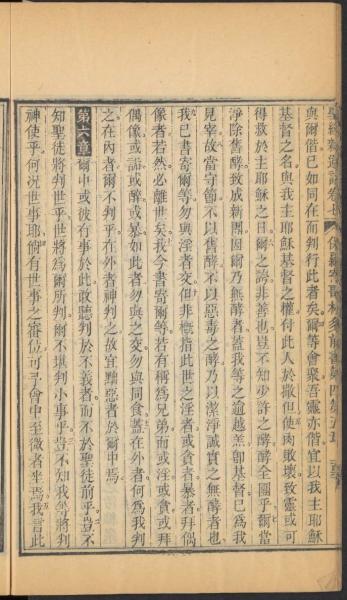 與爾偕已如同在而判行此者矣爾等會聚吾靈亦偕宜以我主耶穌
基督之名與我主耶穌基督之權付此人於撒但使肉敗壞致靈或可
得救於主耶穌之日爾之誇非善也豈不知少許之酵酵全團乎爾當
淨除舊酵致成新團因爾乃無酵者蓋我等之逾越羔卽基督已爲我
見宰故當守節不以舊酵不以惡毒之酵乃以潔淨誠實之無酵者也
我已書寄爾等勿與淫者交但非概指此世之淫者或貪者暴者拜偶
像者若然必離世矣我今書寄爾等若有稱爲兄弟而或淫或貪或拜
偶像或詬或醉或暴如此者勿與之交勿與同食蓋在外者何爲我判
之在內者爾不判乎在外者神判之故宜黜惡者於爾中焉
第六章爾中或彼有事於此敢聽判於不義者而不於聖徒前乎豈不
知聖徒將判世乎世將爲爾所判爾不堪判小事乎豈不知我等將判
神使乎何況世事耶倘有世事之審位可乎會中至微者坐焉我言此